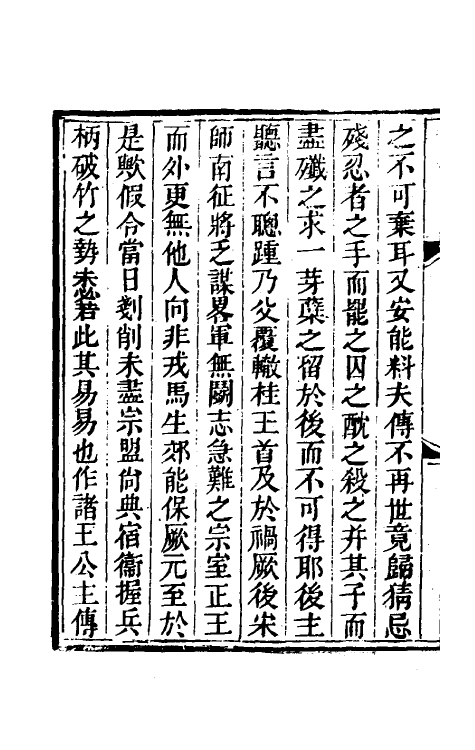 之不可棄耳又安能料夫傳不再世竟歸猜忌
殘忍者之手而罷之囚之酖之殺之并其子而
盡殲之求一芽蘖之留於後而不可得耶後主
聽言不聰踵乃父覆轍桂王首及於禍厥後宋
師南征將乏謀畧軍無鬭志急難之宗室正王
而外更無他人向非戎馬生郊能保厥元至於
是歟假令當日剗削未盡宗盟尙典宿衞握兵
柄破竹之勢未必若此其易易也作諸王公主傳